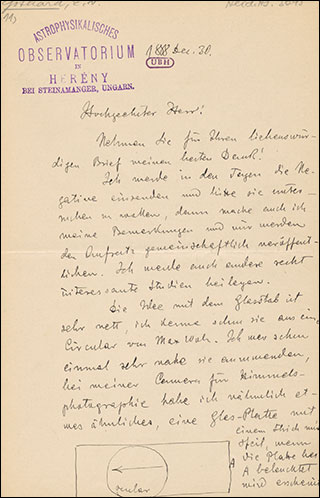 Gothard, E. v.
ASTROPHYSIKALISCHES
OBSERVATORIUM
IN
HERÉNY
BEI STEINAMANGER, UNGARN.
Dec. 30.
UBH
Hochgeehrter Herr!
Nehmen Sie für Ihren liebenswür-
digen Brief meinen besten Dank!
Ich werde in den Tagen die Ne-
gative einsenden und bitte sie unter-
suchen zu wollen, dann mache auch ich
meine Bemerkungen und wir werden
den Aufsatz gemeinschaftlich veröffent-
lichen. Ich werde auch andere recht
interessante Studien beilegen.
Die Idee mit dem Glasstab ist
sehr nett, ich kenne schon sie aus ein
Circular von Max Wolf. Ich war schon
einmal sehr nahe sie anzuwenden,
bei meiner Camera für Himmels-
photographie habe ich nämlich et-
was ähnliches, eine Glas-Platte mit
einem Strich und
Pfeil, wenn
die Platte bei
A beleuchtet
wird erscheint
A
ocular